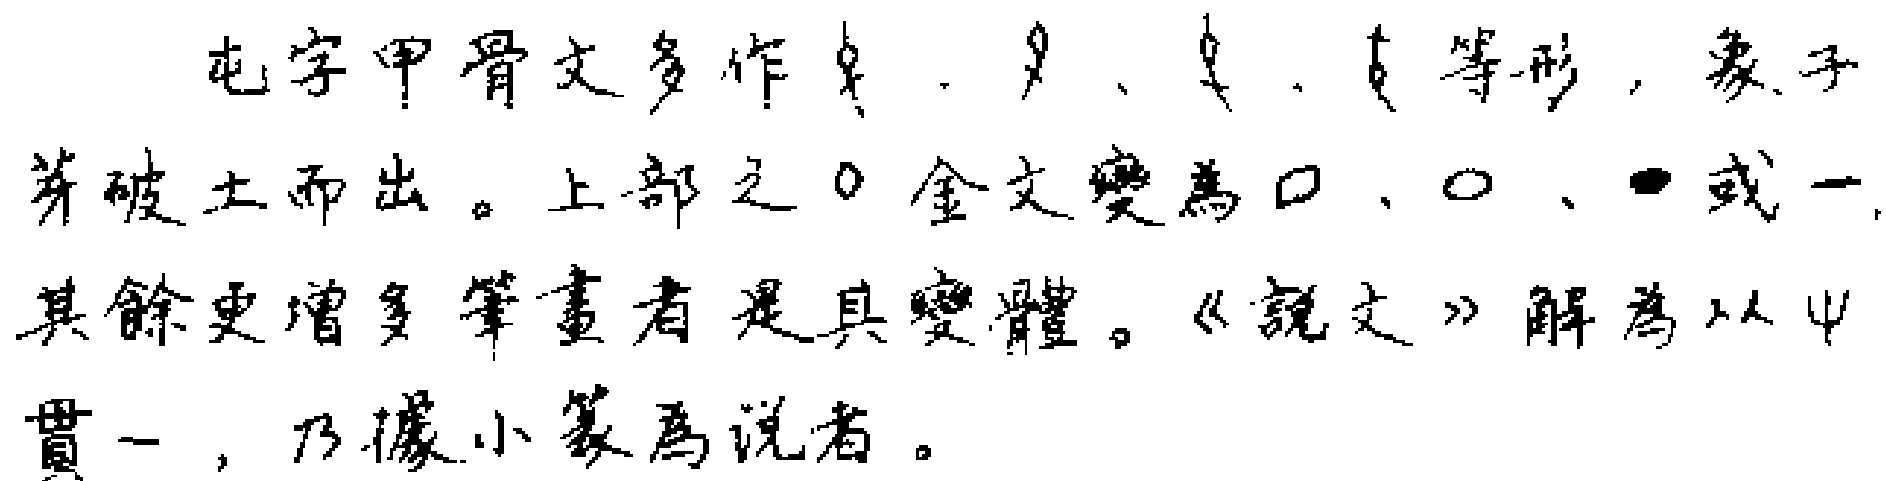 屯字甲骨文多作、、、等形,象子
芽破土而出。上部之金文變為口、○、●或一,
其餘更增多筆畫者是其變體。《説文》解為以屮
貫一,乃據小篆為說者。